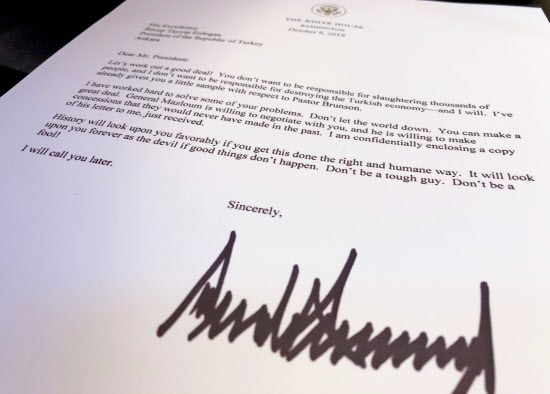 THE WHITE HOUSE
WASHINGTON
October 9, 2019
His Excellency
Recep Tayyip Erdogan
President of the Republic of Turkey
Ankara
Dear Mr. President:
Let's work out a good deal! You don't want to be responsible for slaughtering thousands of
people, and I don't want to be responsible for destroying the Turkish economy—and I will. I've
already given you a little sample with respect to Pastor Brunson.
I have worked hard to solve some of your problems. Don't let the world down. You can make a
great deal. General Mazloum is willing to negotiate with you, and he is willing to make
concessions that they would never have made in the past. I am confidentially enclosing a copy
of his letter to me, just received.
History will look upon you favorably if you get this done the right and humane way. It will look
upon you forever as the devil if good things don't happen. Don't be a tough guy. Don't be a
fool!
I will call you later.
Sincerely,